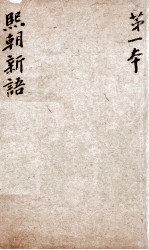 第一本
熙朝新語